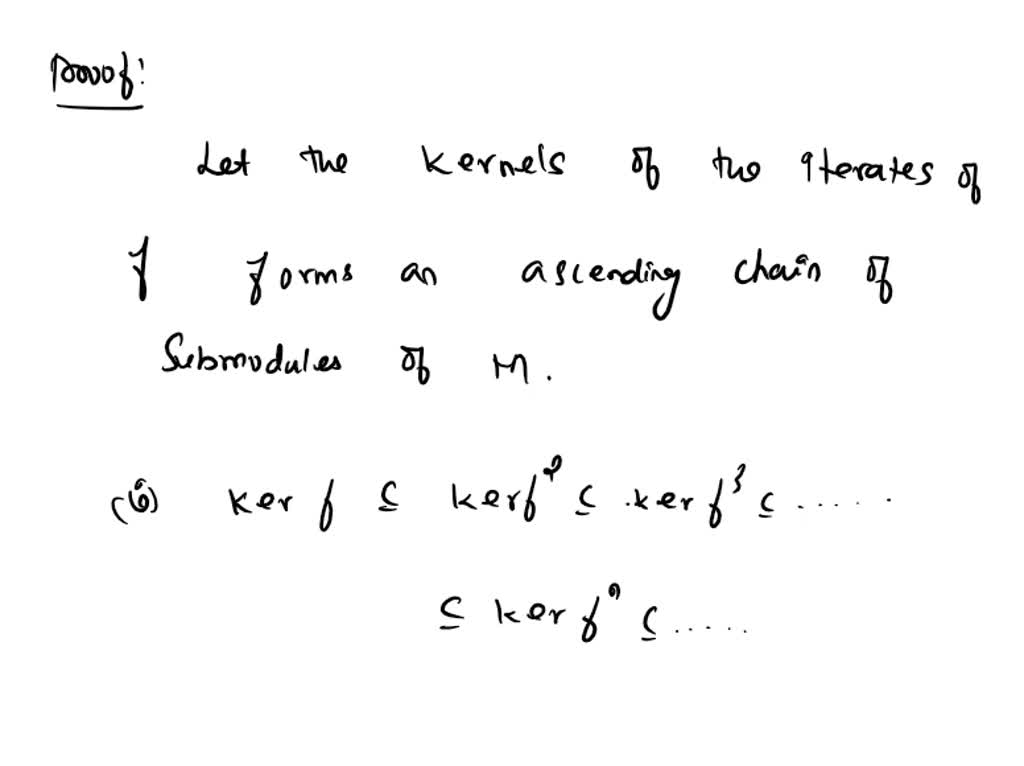 Proof:
Let the kernels of the iterates of
f forms an ascending chain of
Submodules of M.
(i) ker f ⊆ ker f² ⊆ ker f³ ⊆ ......
⊆ ker fⁿ ⊆ .....